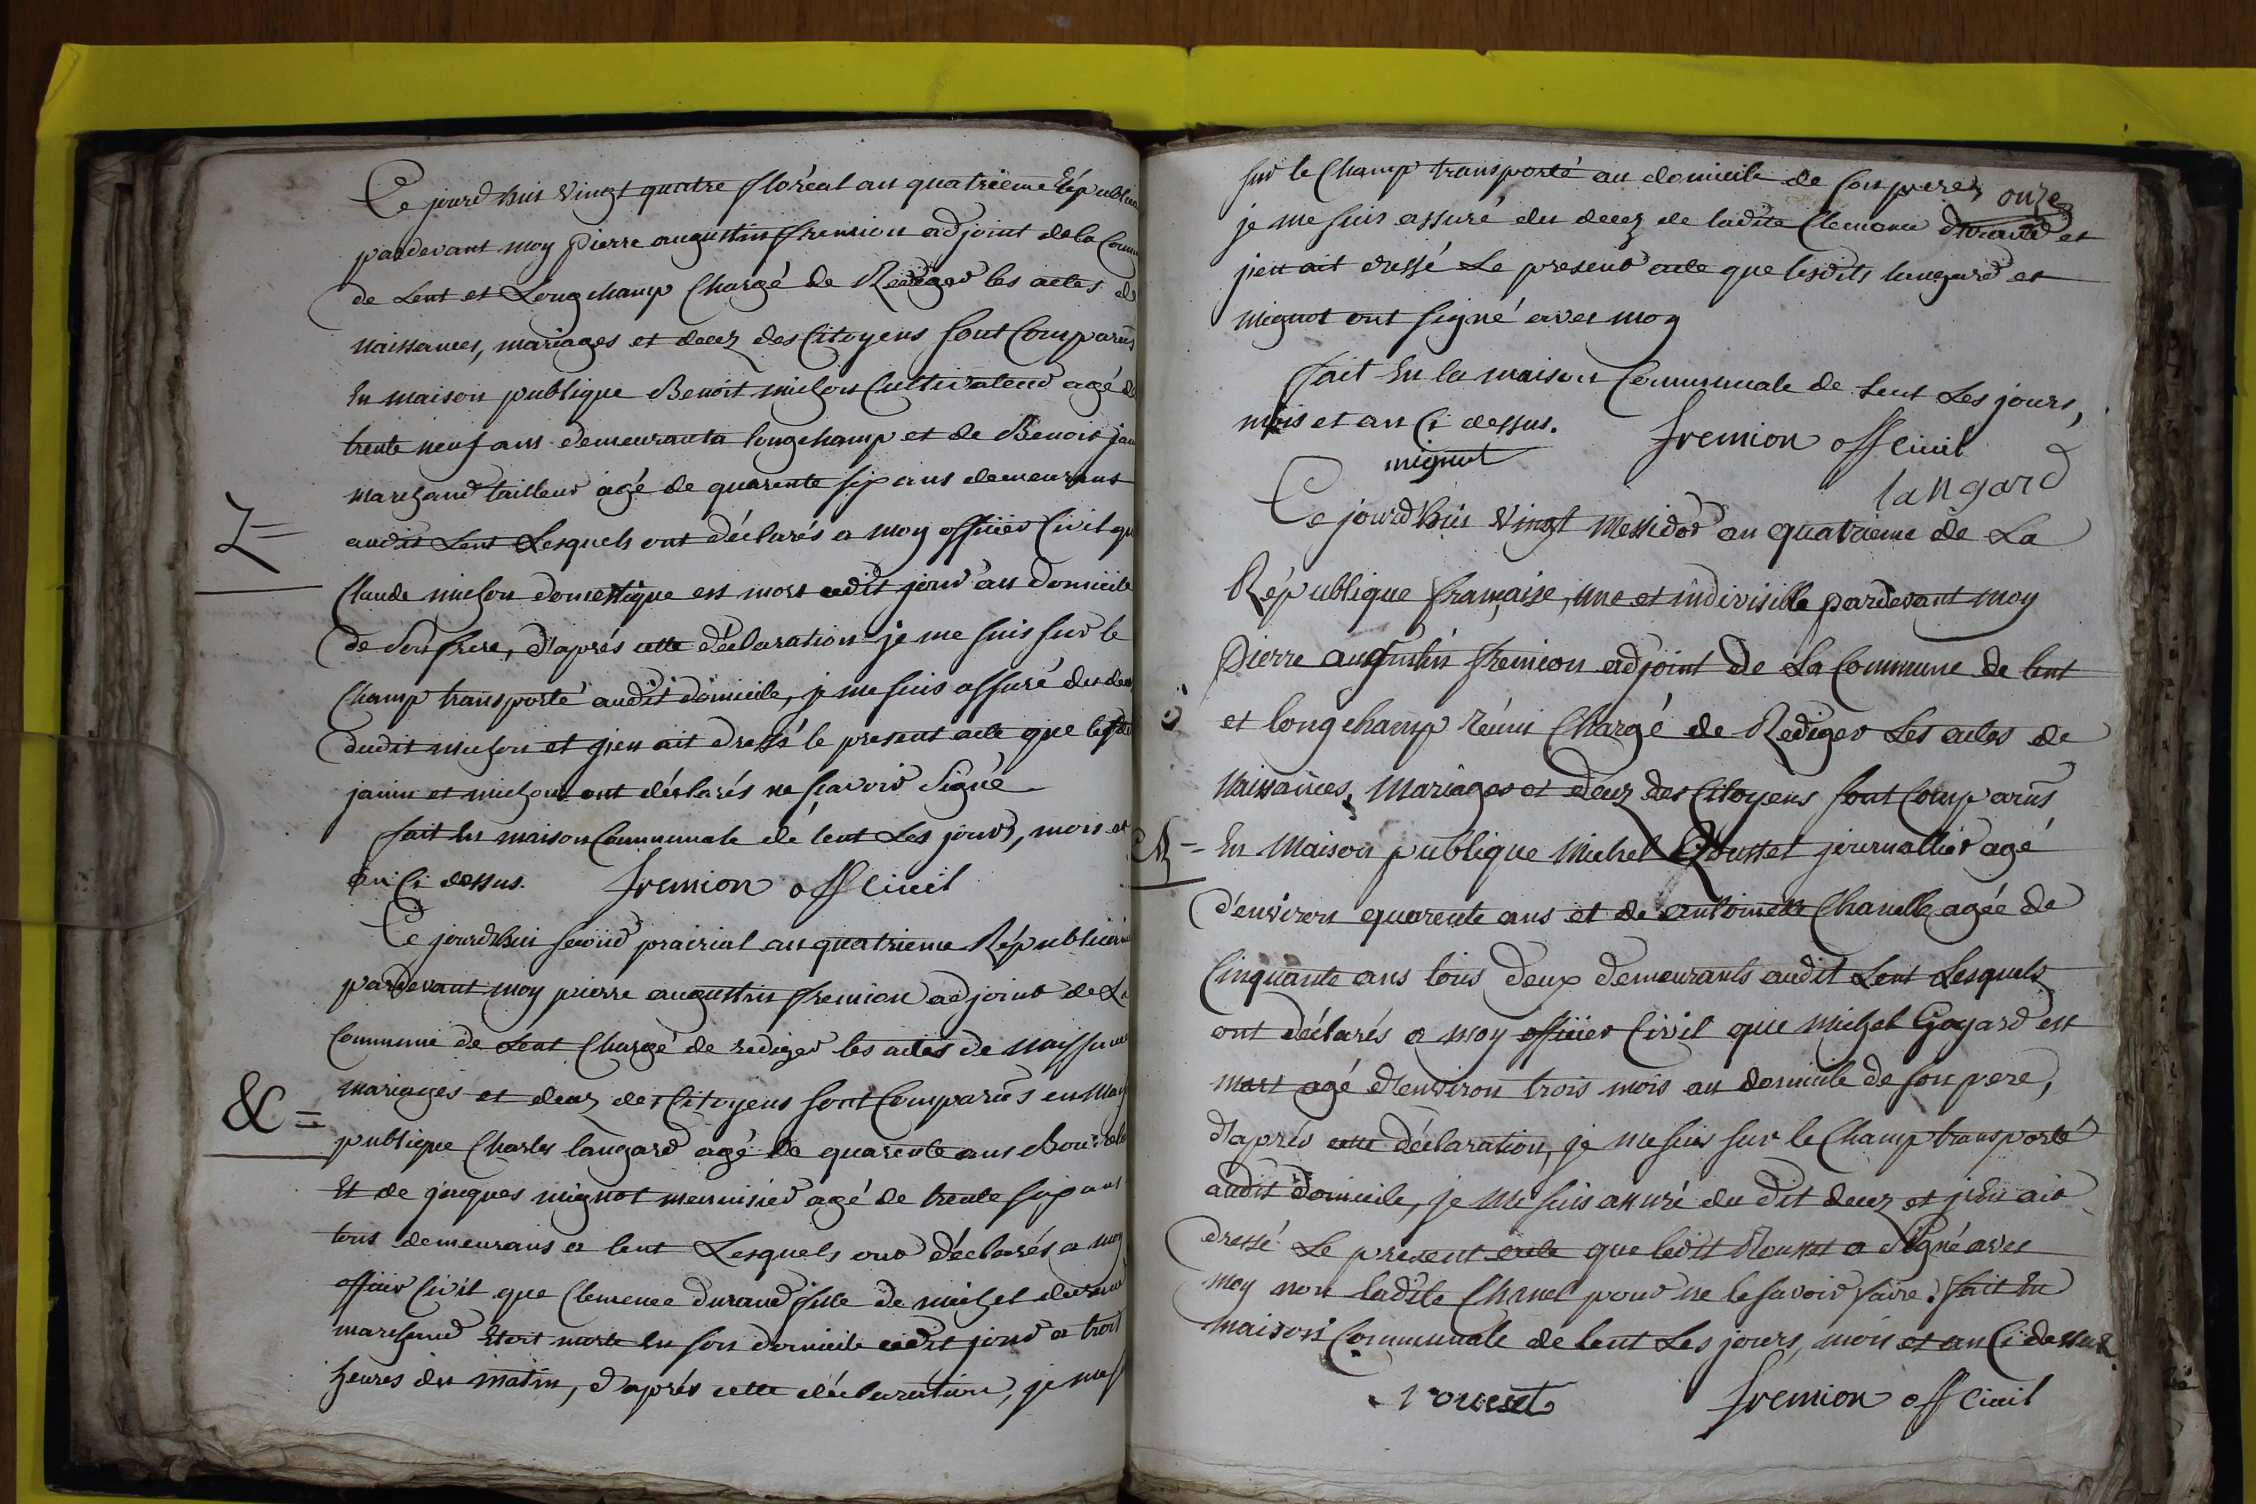 Ce jourd'huis vingt quatre floréal an quatriëme Républicain
pardevant moy pierre augustin fremion adjoint de la Comm
de Lent et Longchamp Chargé de Rediger les actes de
naissances, mariages et decez des Citoyens sont Comparûs
En maison publique Benoit michon Cultivateur agé de
trente neuf ans demeurant a longchamp et de Benoit jan
marchand tailleur agé de quarente six ans demeurans
audit Lent Lesquels ont déclarés a moy officier Civil qu
Z=
Claude michon domestique est mort cedit jour au domicile
de Son frere, d'aprés cette déclaration je me suis sur le
Champ transporté audit domicile, je me suis assuré du decez
dudit michon et j'en ait dressé le present acte que lesdits
janin et michon ont déclarés ne sçavoir Signé
fait En maison Communale de lent Les jours, mois et
an Ci dessus. fremion off civil
Ce jourd'hui second prairial an quatrieme Républicain
pardevant moy pierre augustin fremion adjoint de La
Commune de Lent Chargé de rediger les actes de naissances
mariages et decez des Citoyens sont Comparûs en mais
&=
publique Charles langard agé de quarente ans
Et de jacques mignot menuisier agé de trente six ans
tous demeurans a lent Lesquels ont déclarés a moy
officier Civil que Clemence durand fille de michel durand
marchand Etoit morte En son domicile cedit jour a trois
heures du matin, d'aprés cette déclaration, je me s
sur le Champ transporté au domicile de son pere, onze
je me suis assuré du decez de ladite Clemence durand et
j'en ait dressé Le present acte que lesdits langard et
mignot ont signé avec moy
fait En la maison Communale de Lent Les jours,
mois et an Ci dessus. fremion off civil
mignot
langard
Ce jourd'huis vingt Messidor an quatrieme de La
République française, une et indivisible pardevant moy
Pierre augustin fremion adjoint de La Commune de lent
et longchamp réuni Chargé de Rediger Les actes de
Naissances, Mariages et décez des Citoyens sont Comparûs
En Maison publique Michel Rousset journallier agé
d'environ quarente ans et de antoinette Chanelle agée de
Cinquante ans tous deux demeurants audit Lent Lesquels
ont déclarés a moy officier Civil que Michel Goyard est
mort agé d'environ trois mois au domicile de son pere,
d'aprés cette déclaration, je me suis sur le Champ transporté
audit domicile, je me suis assuré du dit decez et j'En ait
dressé Le present acte que ledit Rousset a Signé avec
moy non ladite Chanel pour ne le savoir faire. fait En
maison Communale de lent Les jours, mois et an Ci dessus.
rousset fremion off civil